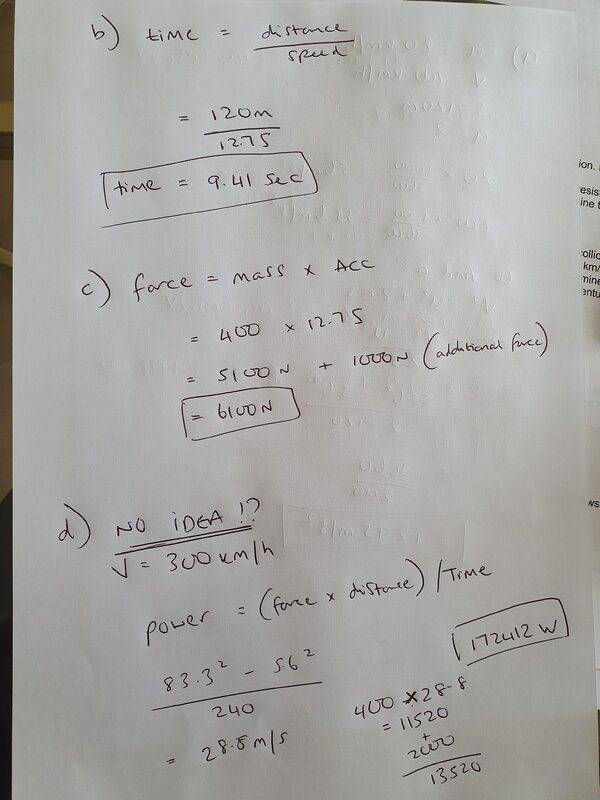 b) time = distance
speed
= 120m
12.75
time = 9.41 sec
c) force = mass x Acc
= 400 x 12.75
= 5100N + 1000N (additional force)
= 6100N
d) NO iDEA !?
V = 300 km/h
power = (force x distance) / Time
83.3² - 5.6²
240
= 28.8 m/s
172412 W
400 x 28.8
= 11520
+
2000
13520
ion.
esis
ine t
collic
km/
mine
entu
ws